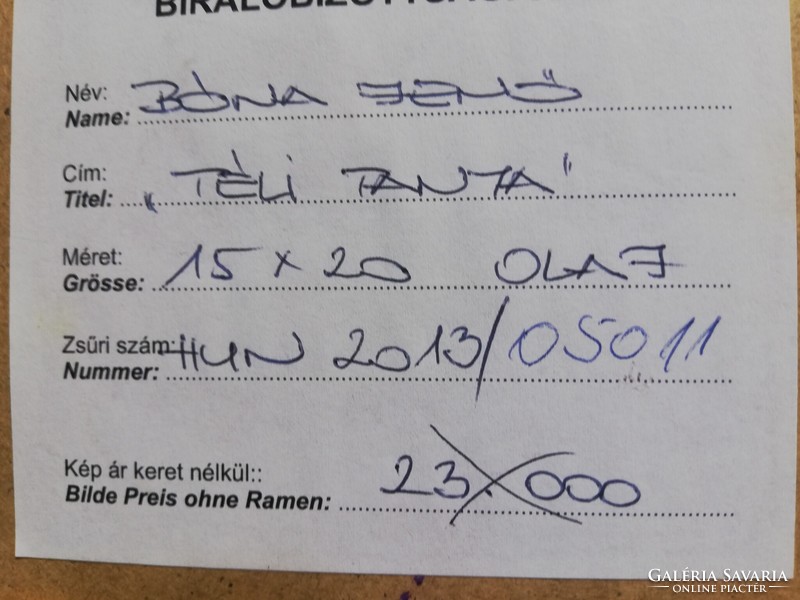 BÍRÁLÓBIZOTTSÁG
Név: BÓNA JENŐ
Name:
Cím: "TÉLI TANYA"
Titel:
Méret: 15 x 20 OLAJ
Grösse:
Zsűri szám: HUN 2013/05011
Nummer:
Kép ár keret nélkül:: 23.000
Bilde Preis ohne Ramen:
GALÉRIA SAVARIA
ONLINE PIACTÉR